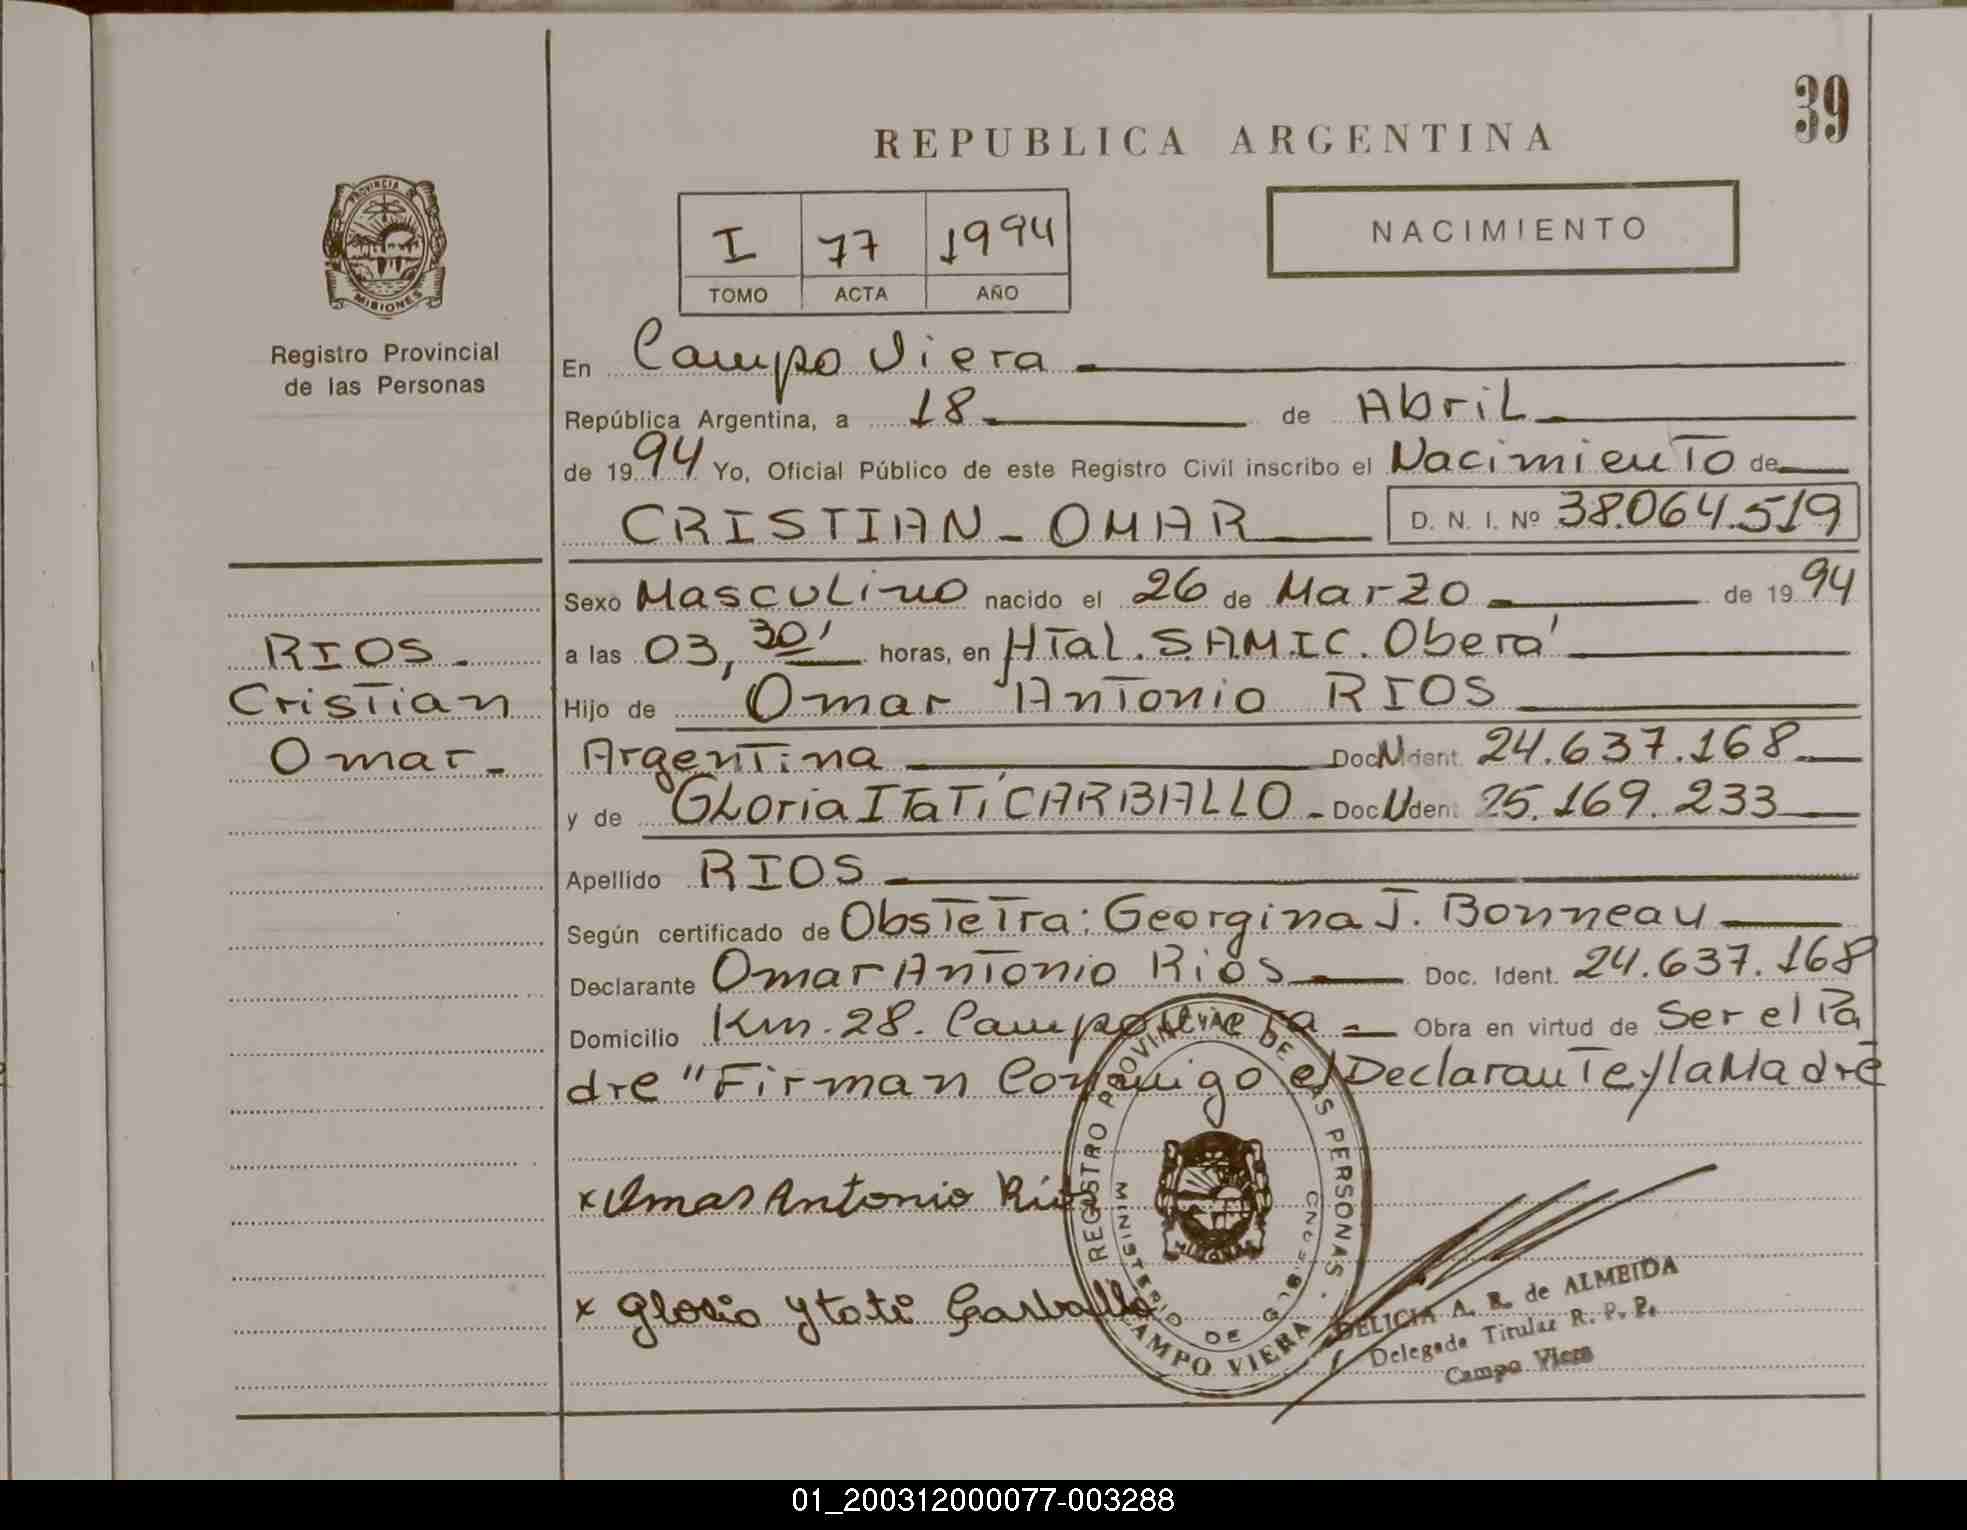 39
REPUBLICA ARGENTINA
PROVINCIA DE
MISIONES
Registro Provincial
de las Personas
I 77 1994
TOMO ACTA AÑO
NACIMIENTO
En Campo Viera
República Argentina, a 18 de Abril
de 1994 Yo, Oficial Público de este Registro Civil inscribo el Nacimiento de
CRISTIAN - OMAR D. N. I. Nº 38.064.519
Sexo Masculino nacido el 26 de Marzo de 1994
a las 03,30' horas, en HTal. S.A.M.I.C. Oberá
Hijo de Omar Antonio RIOS
Argentina Doc N ident. 24.637.168
y de Gloria ITaTí CARBALLO - Doc U dent 25.169.233
Apellido RIOS
Según certificado de ObsTeTra: Georgina J. Bonneau
Declarante Omar Antonio Rios Doc. Ident. 24.637.168
Domicilio Km. 28. Campo Viera Obra en virtud de Ser el Pa
dre "Firman Conmigo el Declarante y la Madre
RIOS.
Cristian
Omar-
x Omar Antonio Ríos
x Gloria Ytatí Carballo
REGISTRO PROVINCIAL DE LAS PERSONAS
MINISTERIO DE
CAMPO VIERA
DELICIA A. R. de ALMEIDA
Delegada Titular R. P. P.
Campo Viera
01_200312000077-003288